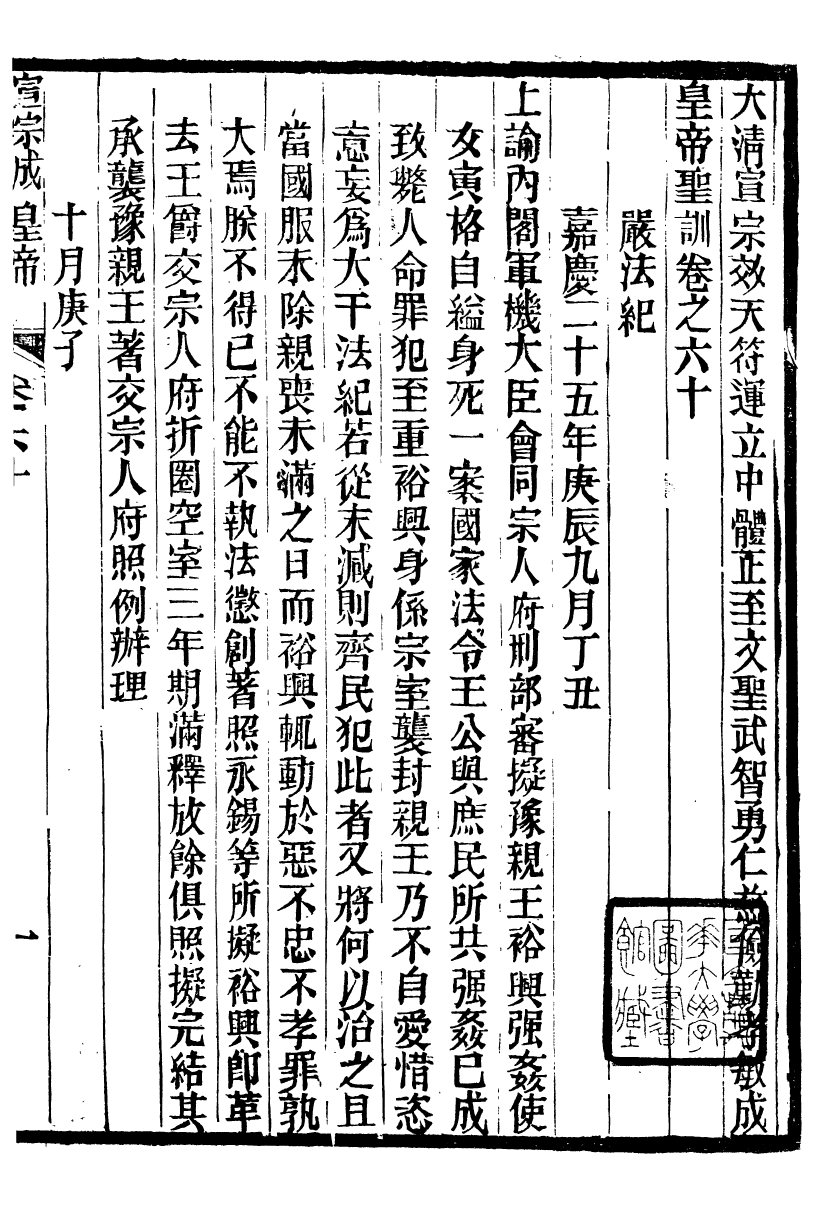 大清宣宗效天符運立中體正至文聖武智勇仁慈儉勤孝敏成
皇帝聖訓卷之六十
嚴法紀
嘉慶二十五年庚辰九月丁丑
上諭內閣軍機大臣會同宗人府刑部審擬豫親王裕興强姦使
女寅格自縊身死一案國家法令王公與庶民所共强姦已成
致斃人命罪犯至重裕興身係宗室襲封親王乃不自愛惜恣
意妄爲大干法紀若從末減則齊民犯此者又將何以治之且
當國服未除親喪未滿之日而裕興輒動於惡不忠不孝罪孰
大焉朕不得已不能不執法懲創著照永錫等所擬裕興卽革
去王爵交宗人府折圈空室三年期滿釋放餘俱照擬完結其
承襲豫親王著交宗人府照例辦理
十月庚子
宣宗成皇帝
卷六十
一
華大學
圖書
館藏